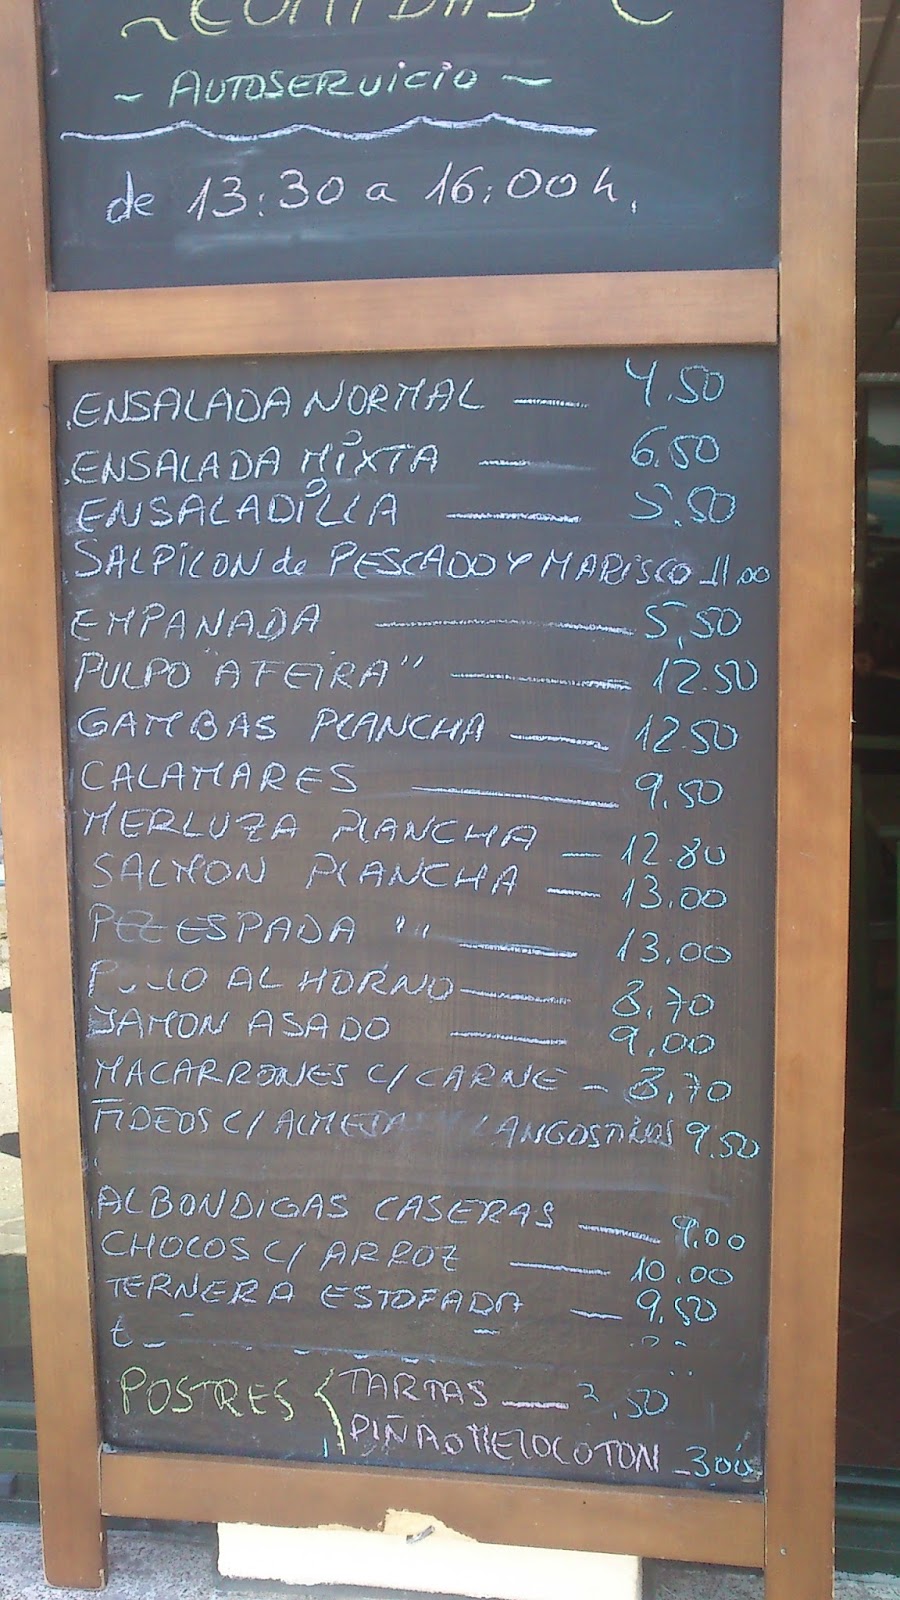 ~COMIDAS
~ AUTOSERVICIO ~
de 13:30 a 16:00h.
.ENSALADA NORMAL — 4.50
.ENSALADA MIXTA — 6.50
ENSALADILLA — 5.50
SALPICON de PESCADO Y MARISCO 11.00
EMPANADA — 5,50
PULPO "A FEIRA" — 12.50
GAMBAS PLANCHA — 12.50
CALAMARES — 9.50
MERLUZA PLANCHA — 12.80
SALMON PLANCHA — 13.00
PEZ ESPADA "" — 13.00
POLLO AL HORNO — 8.70
JAMON ASADO — 9.00
MACARRONES C/ CARNE — 8,70
FIDEOS C/ ALMEJAS Y LANGOSTINOS 9.50
ALBONDIGAS CASERAS — 9.00
CHOCOS C/ ARROZ — 10.00
TERNERA ESTOFADA — 9.50
POSTRES { TARTAS — ,50
PIÑA o MELOCOTON — 3 00